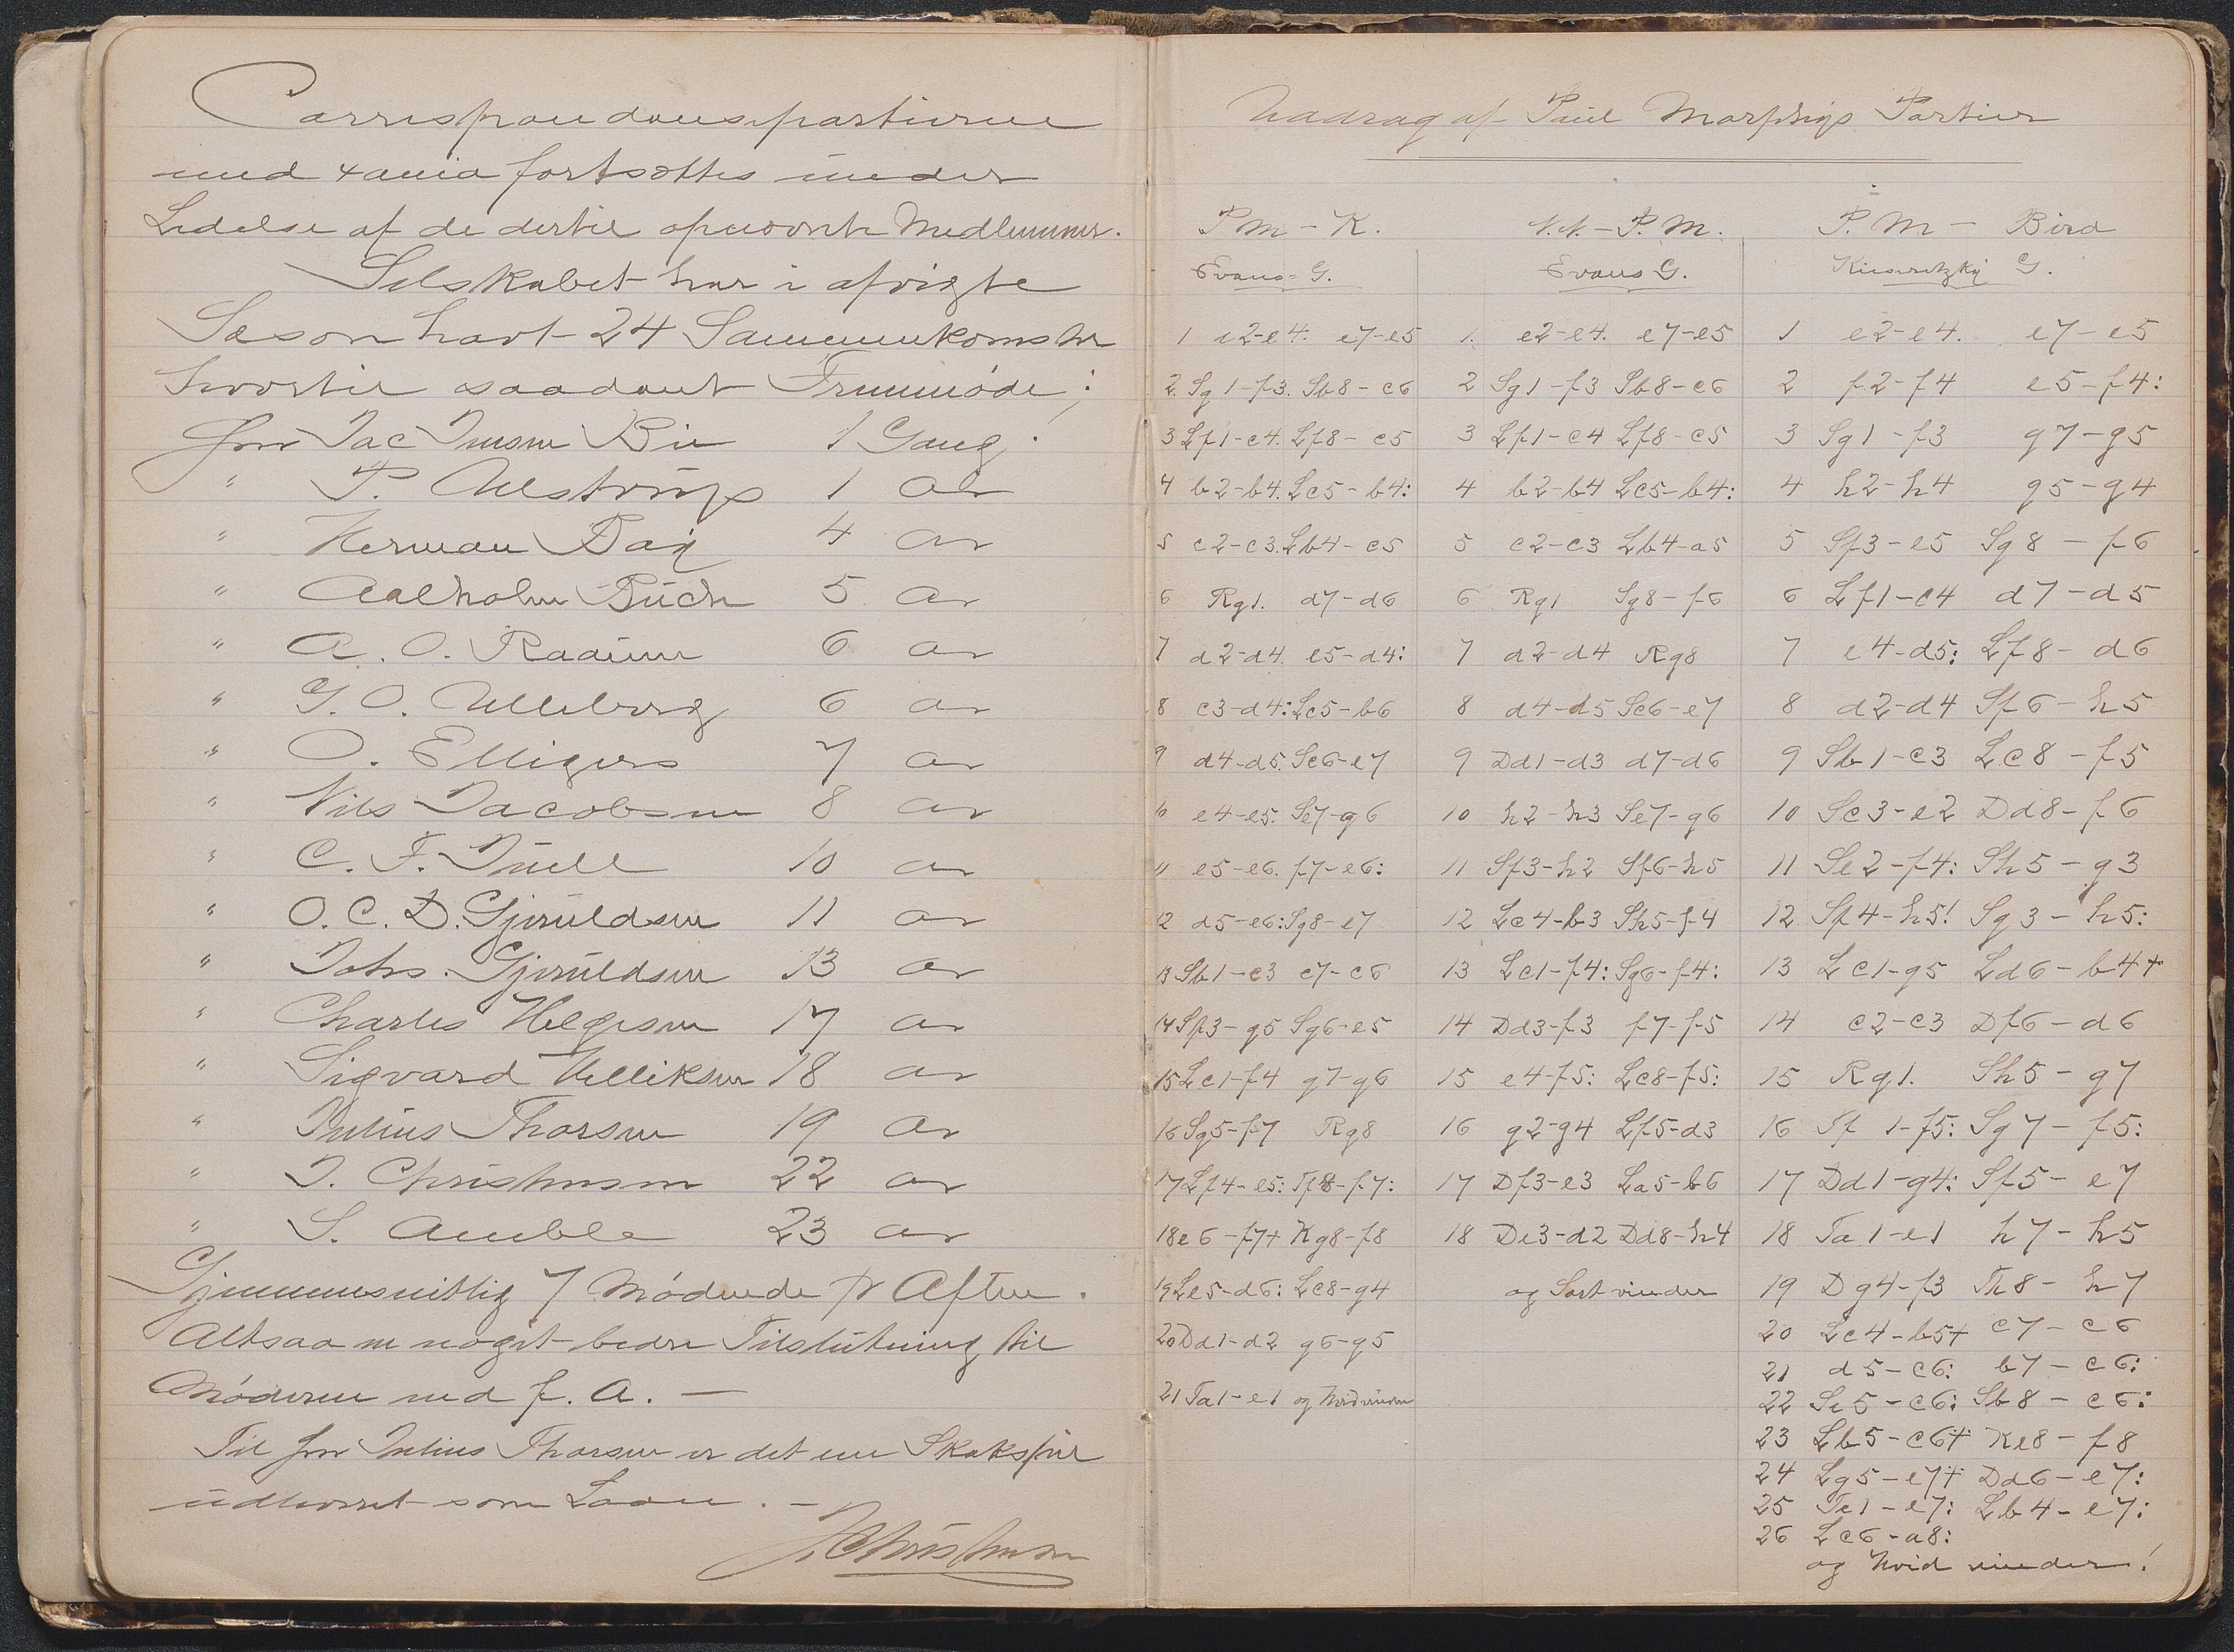 Correspondancepartierne
med Xania fortsættes under
Ledelse af de dertil opnævnte Medlemmer.
Selskabet har i afvigte
Sæson havt 24 Sammenkomster
hvortil saadant Fremmøde;
Herr Jac Jensen Bie 1 Gang.
" P. Aalstrup 1 do
" Herman Bay 4 do
" Aalholm Puch 5 do
" A. O. Raaum 6 do
" G. O. Ulleberg 6 do
" O. Elligers 7 do
" Nils Jacobsen 8 do
" C. F. Juell 10 do
" O. C. D. Gjeruldsen 11 do
" Johs. Gjeruldsen 13 do
" Charles Helgesen 17 do
" Sigvard Velliksen 18 do
" Julius Thorsen 19 do
" J. Christensen 22 do
" S. Amble 23 do
Gjennemsnitlig 7 Mødende pr Aften.
Altsaa en noget bedre Tilslutning til
Møderne end f. A. —
Til Herr Julius Thorsen er det ene Skakspil
udleveret som Laan. —
J Christensen
Uddrag af Paul Morphys Partier
P M – K.
Evans-G.
1 e2-e4. e7-e5
2. Sg1-f3. Sb8-c6
3 Lf1-c4. Lf8-c5
4 b2-b4. Lc5-b4:
5 c2-c3. Lb4-c5
6 Rg1. d7-d6
7 d2-d4. e5-d4:
8 c3-d4: Lc5-b6
9 d4-d5. Sc6-e7
10 e4-e5. Se7-g6
11 e5-e6. f7-e6:
12 d5-e6: Sg8-e7
13 Sb1-c3 c7-c6
14 Sf3-g5 Sg6-e5
15 Lc1-f4 g7-g6
16 Sg5-f7 Rg8
17 Lf4-e5: Tf8-f7:
18 e6-f7+ Kg8-f8
19 Le5-d6: Lc8-g4
20 Dd1-d2 g6-g5
21 Ta1-e1 og hvid vinder
N.N. – P. M.
Evans G.
1. e2-e4. e7-e5
2 Sg1-f3 Sb8-c6
3 Lf1-c4 Lf8-c5
4 b2-b4 Lc5-b4:
5 c2-c3 Lb4-a5
6 Rg1 Sg8-f6
7 d2-d4 Rg8
8 d4-d5 Sc6-e7
9 Dd1-d3 d7-d6
10 h2-h3 Se7-g6
11 Sf3-h2 Sf6-h5
12 Lc4-b3 Sh5-f4
13 Lc1-f4: Sg6-f4:
14 Dd3-f3 f7-f5
15 e4-f5: Lc8-f5:
16 g2-g4 Lf5-d3
17 Df3-e3 La5-b6
18 De3-d2 Dd8-h4
og Sort vinder
P. M – Bird
Kieseritzky G.
1 e2-e4. e7-e5
2 f2-f4 e5-f4:
3 Sg1-f3 g7-g5
4 h2-h4 g5-g4
5 Sf3-e5 Sg8-f6
6 Lf1-c4 d7-d5
7 e4-d5: Lf8-d6
8 d2-d4 Sf6-h5
9 Sb1-c3 Lc8-f5
10 Sc3-e2 Dd8-f6
11 Se2-f4: Sh5-g3
12 Sf4-h5! Sg3-h5:
13 Lc1-g5 Ld6-b4+
14 c2-c3 Df6-d6
15 Rg1. Sh5-g7
16 Tf1-f5: Sg7-f5:
17 Dd1-g4: Sf5-e7
18 Ta1-e1 h7-h5
19 Dg4-f3 Th8-h7
20 Lc4-b5+ c7-c6
21 d5-c6: b7-c6:
22 Se5-c6: Sb8-c6:
23 Lb5-c6+: Ke8-f8
24 Lg5-e7+ Dd6-e7:
25 Te1-e7: Lb4-e7:
26 Lc6-a8:
og hvid vinder!